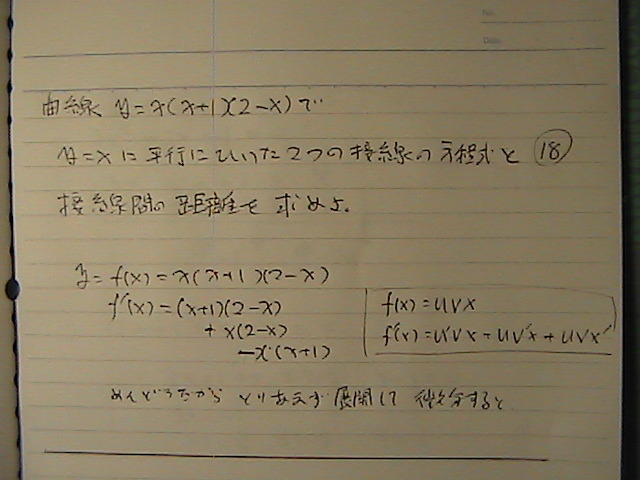 No.
Date
曲線 y=x(x+1)(2-x)で
y=xに平行にひいた2つの接線の方程式と ⑱
接線間の距離を求めよ。
y=f(x)=x(x+1)(2-x)
f'(x)=(x+1)(2-x)
+x(2-x)
-x(x+1)
f(x)=uvx
f'(x)=u'vx+uv'x+uvx'
めんどうだから とりあえず 展開して 微分すると